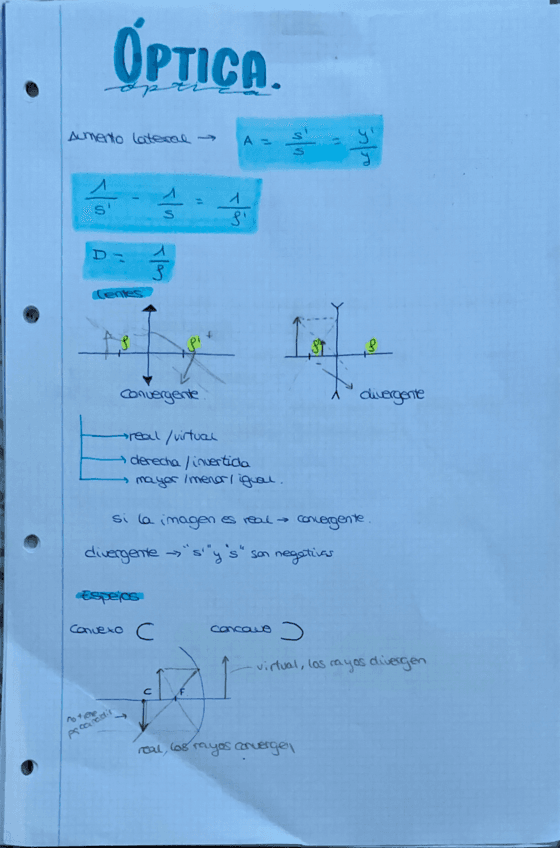 ÓPTICA.
óptica
Aumento lateral → A = s'/s = y'/y
1/s' - 1/s = 1/f'
D = 1/f
Lentes
f f'
f' f
convergente divergente
real/virtual
derecha/invertida
mayor/menor/igual.
si la imagen es real → convergente.
divergente → "s'" y "s" son negativas
Espejos
convexo concavo
virtual, los rayos divergen
C F
real, los rayos convergen